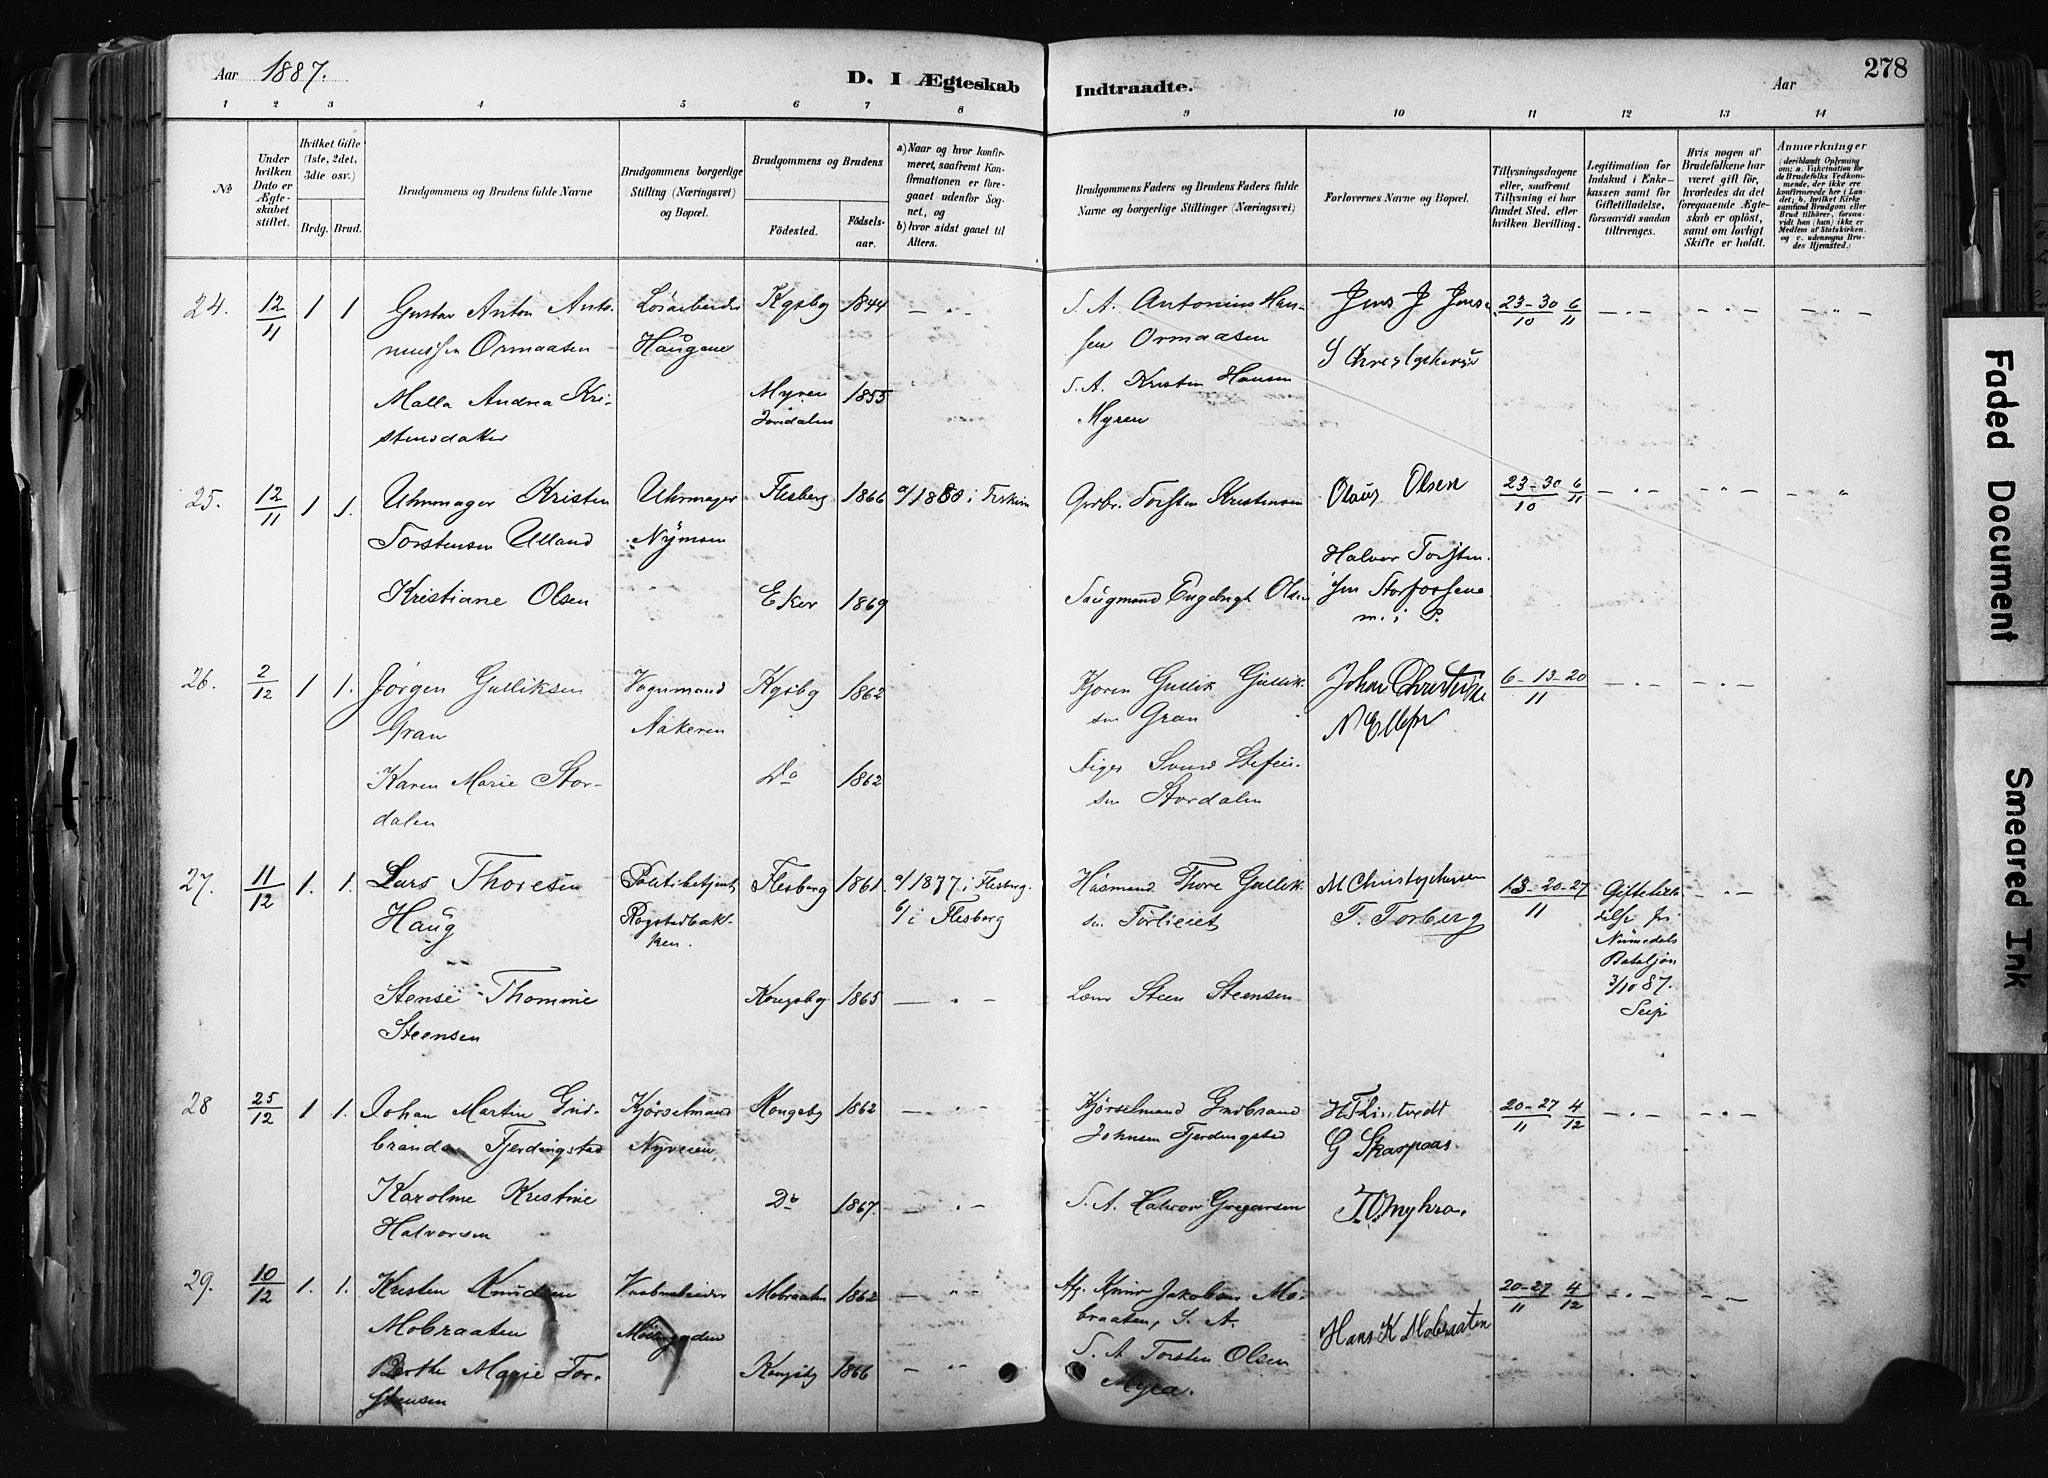 Aar 1887.
D. I Ægteskab
Indtraadte.
Aar
278
1 2 3 4 5 6 7 8
9 10 11 12 13 14
No
Under hvilken Dato er Ægteskabet stiftet.
Hvilket Gifte (1ste, 2det, 3die osv.)
Brdg. Brud.
Brudgommens og Brudens fulde Navne
Brudgommens borgerlige Stilling (Næringsvei) og Bopæl.
Brudgommens og Brudens
Födested.
Födselsaar.
a) Naar og hvor konfirmeret, saafremt Konfirmationen er foregaaet udenfor Sognet, og
b) hvor sidst gaaet til Alters.
Brudgommens Faders og Brudens Faders fulde Navne og borgerlige Stillinger (Næringsvei)
Forlovernes Navne og Bopæl.
Tillysningsdagene eller, saafremt Tillysning ei har fundet Sted, efter hvilken Bevilling.
Legitimation for Indskud i Enkekassen samt for Giftetilladelse, forsaavidt saadan tiltrænges.
Hvis nogen af Brudefolkene har været gift för, hvorledes da det foregaaende Ægteskab er oplöst, samt om lovligt Skifte er holdt.
Anmærkninger
(deriblandt Oplysning om: a. Vakcination for de Brudefolks Vedkommende, der ikke ere konfirmerede her i Landet; b. hvilket Kirkesamfund Brudgom eller Brud tilhörer, forsaavidt han (hun) ikke er Medlem af Statskirken. og c. udensogns Brudes Hjemsted.)
24. 12/11 1 1 Gustav Anton Anto-
Kgsbg 1844
S. A. Antonius Han-
Jens J Jens
23-30/10 6/11
Ormaasen
Haugene
sen Ormaasen
Malla Andrea Kri-
Myren 1855
S. A. Kristen Hansen
stensdatter
Jondalen
Myren
25. 12/11 1 1. Uhrmager Kristen
Uhrmager
Flesberg 1866
a/1880 i
Torsten Kristensen
Olaus Olsen
23-30/10 6/11
Torstensen Ulland
Nymoen
Halvor Torsten
Kristiane Olsen
Eker 1869
Engebregt Olsen
sen Storfossene
m. i S.
26. 2/12 1 1. Jörgen Gulliksen
Vognmand
Kgsbg 1862
Gullik Gullik-
Johan Christensen
6-13-20/11
Gran
Aakeren
sen Gran
Karen Marie Stor-
Do 1862
Svend
dalen
sen Stordalen
27. 11/12 1. 1. Lars Thoresen
Politibetjent
Flesberg 1861.
a/1877 i Flesberg.
Husmand Thore Gullik-
M Christophersen
13-20-27/11
Haug
Rogstadbak-
ken.
b/ i Flesberg
sen
T. Torberg
Giftetilla-
delse fra
Numedals
Bataljon
3/10 87.
Seip
Stense Thomine
Kongsbg 1865
Steen Steensen
Steensen
28 25/12 1 1. Johan Martin Gud-
Kjörselmand
Kongsbg 1862
Kjörselmand Gudbrand
H Thintvedt
20-27/11 4/12
Fjerdingstad
Nyveien
Johnsen Fjerdingstad
G Skarpaas.
Karoline Kristine
Do 1867.
S. A. Halvor Gregersen
T. O. Myhra.
Halvorsen
29. 10/12 1. 1. Kristen Knudsen
Mobraaten 1862
Jakobsen Mo-
20-27/11 4/12
Mobraaten
braaten, S. A.
Hans K Mobraaten
Berthe Marie Tor-
Kongsbg 1866
S. A Torsten Olsen
stensen
Myra.
Faded Document
Smeared Ink